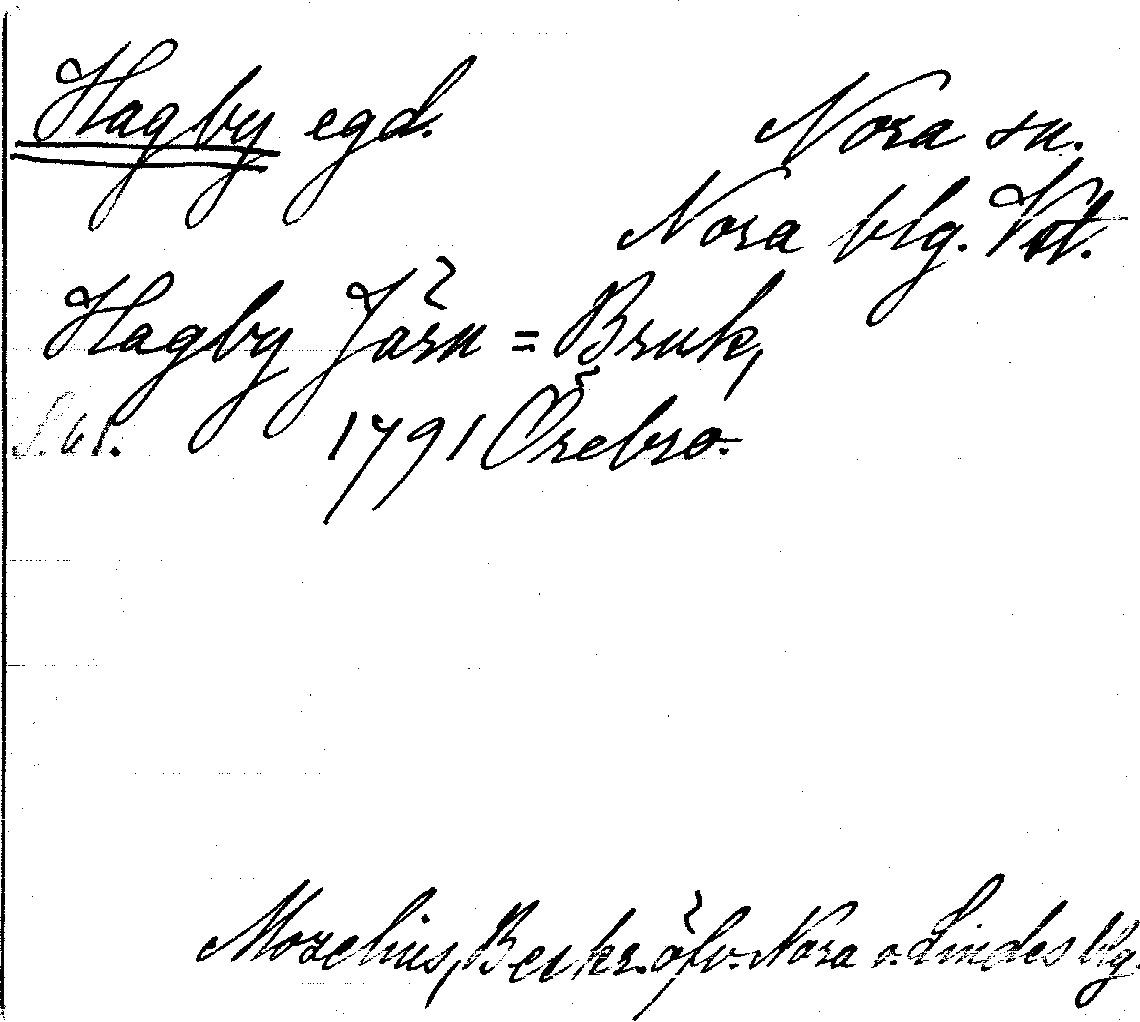 Hagby egd. Nora sn.
Nora blg. Vstl.
Hagby Järn=Bruk,
S. 61. 1791 Örebro.
Morelius, Beskr. öfv. Nora o. Lindes blg.